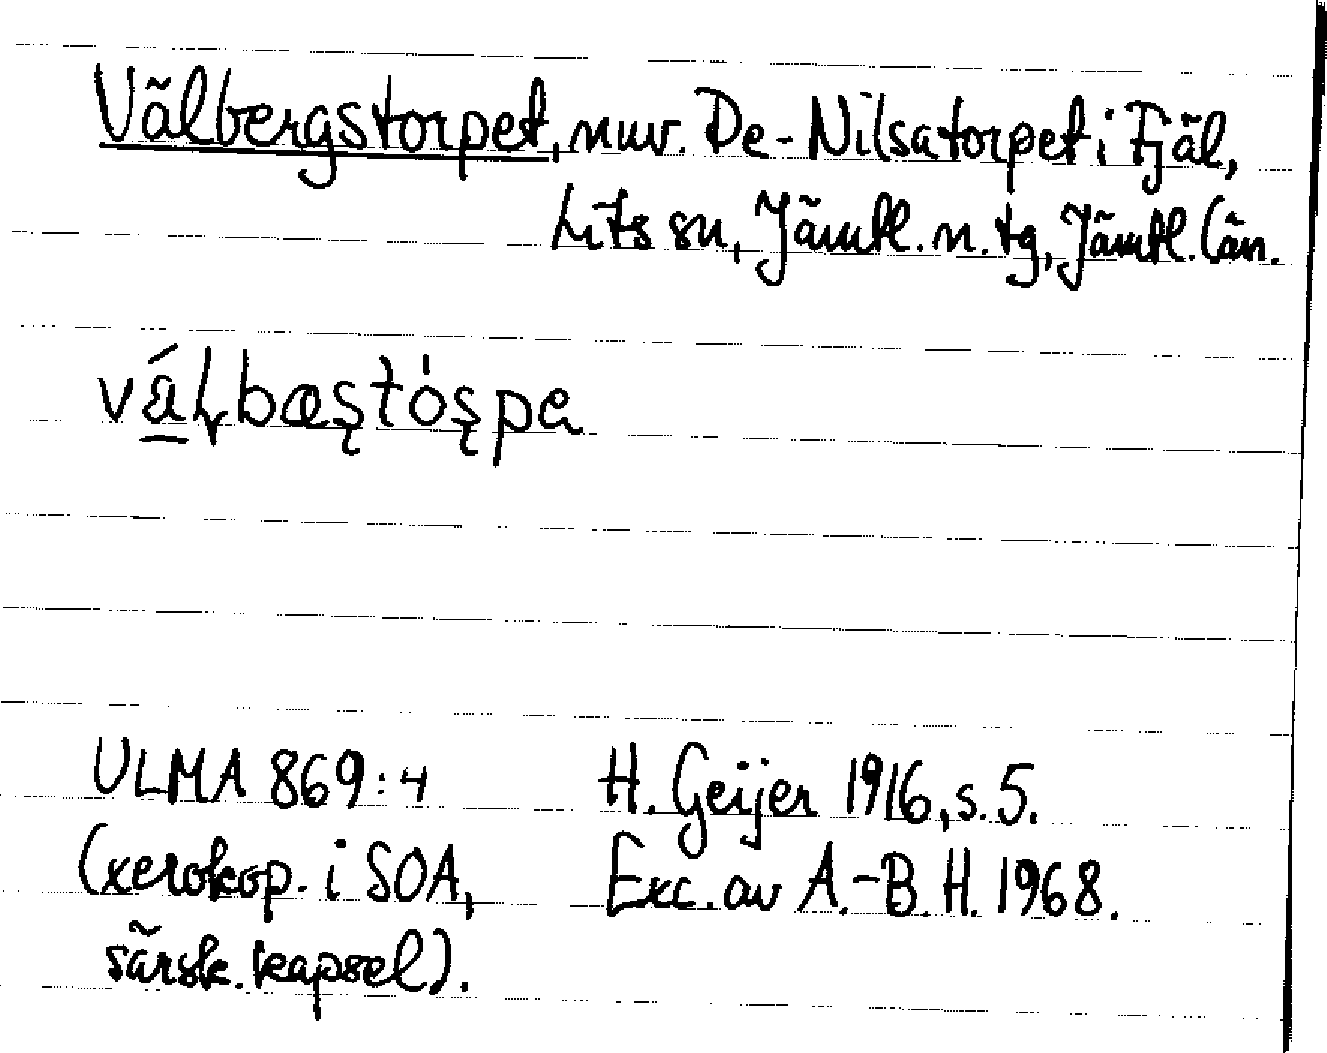 Välbergstorpet, nuv. De-Nilsatorpet i Fjäl,
Lits sn, Jämtl. n. tg, Jämtl. län.
ULMA 869:4 H. Geijer 1916, s. 5.
(xerokop. i SOA, Exc. av A.-B. H. 1968.
särsk. kapsel).